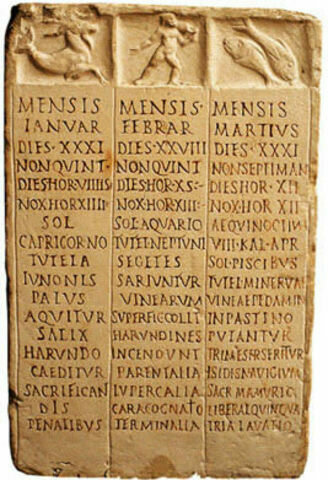 MENSIS
IANVAR
DIES·XXXI
NONQVINT
DIESHORVIIIIS
NOXHORXIIII·
SOL
CAPRICORNO
TVTELA
IVNONIS
PALVS
AQVITVR
SALIX
HARVNDO
CAEDITVR
SACRIFICAN
DIS
PENATIBVS
MENSIS·
FEBRAR
DIES·XXVIII
NONQVINT
DIESHOR·XS·
NOXHORXIII·
SOL·AQVARIO
TVTEL·NEPTVNI
SEGETES
SARIVNTVR
VINEARVM
SVPERFIC·COLIT
HARVNDINES
INCENDVNT
PARENTALIA
LVPERCALIA
CARACOGNATO
TERMINALIA
MENSIS
MARTIVS
DIES·XXXI
NONSEPTIMAN
DIESHOR·XII
NOX·HOR·XII
AEQVINOCTIVM
VIII·KAL·APR
SOL·PISCIBVS
TVTEL·MINERVAE
VINEAEPEDAMIN
INPASTINO
PVTANTVR
TRIMESTRSERITVR
ISIDISNAVIGIVM
SACR·MAMVRIO
LIBERAL·QVINQVA
TRIA·LAVATIO